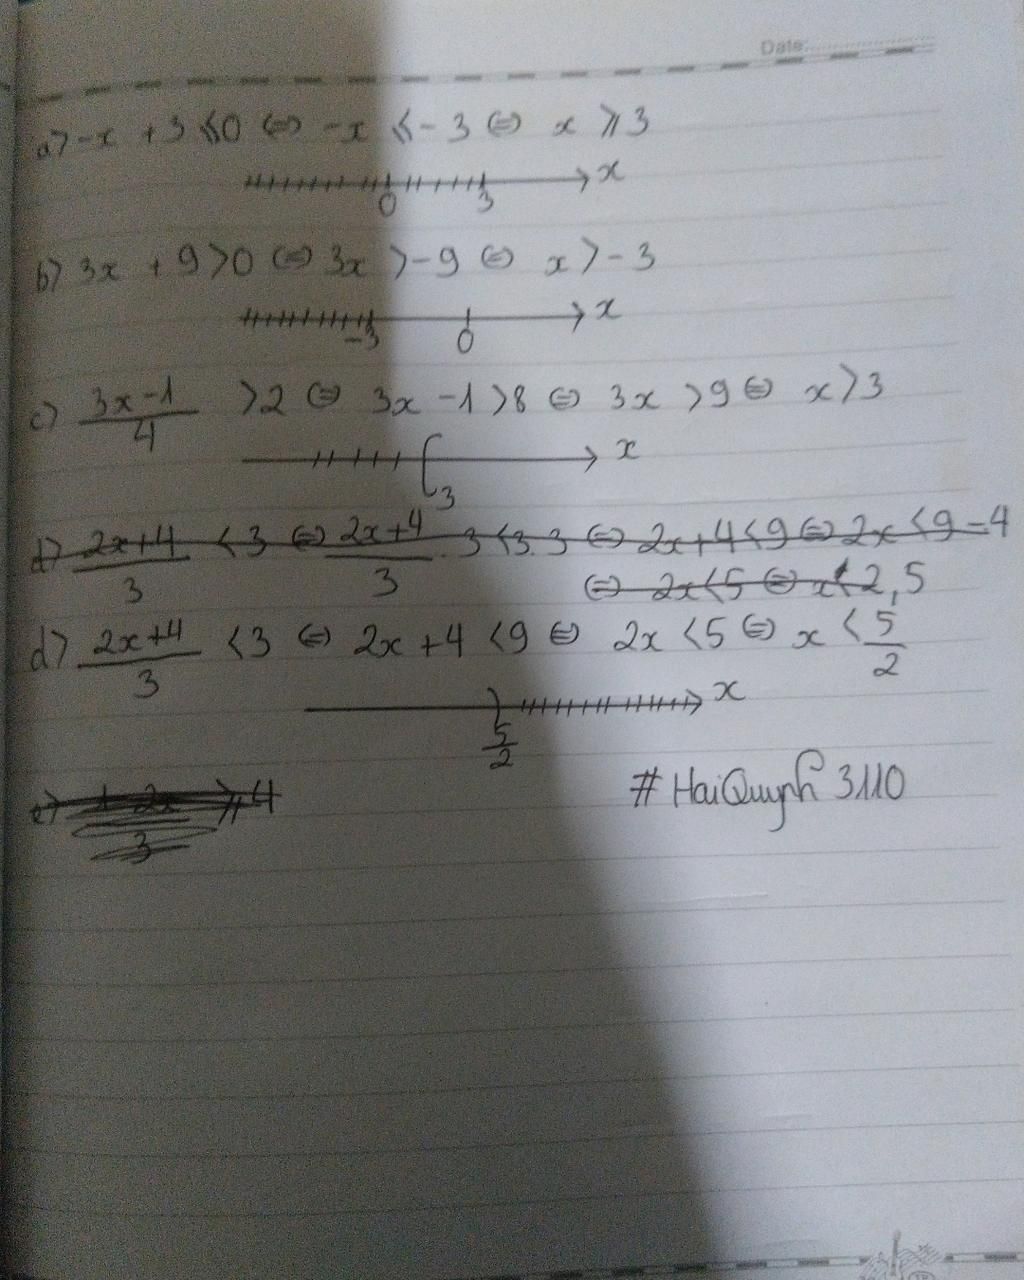 Date:
a) -x + 3 ≤ 0 ⇔ -x ≤ -3 ⇔ x ≥ 3
0 3 x
b) 3x + 9 > 0 ⇔ 3x > -9 ⇔ x > -3
-3 0 x
c) (3x-1)/4 > 2 ⇔ 3x - 1 > 8 ⇔ 3x > 9 ⇔ x > 3
3 x
d) (2x+4)/3 < 3 ⇔ (2x+4)/3 . 3 < 3.3 ⇔ 2x+4 < 9 ⇔ 2x < 9-4
⇔ 2x < 5 ⇔ x < 2,5
d) (2x+4)/3 < 3 ⇔ 2x + 4 < 9 ⇔ 2x < 5 ⇔ x < 5/2
5/2 x
#HaiQuynh3110